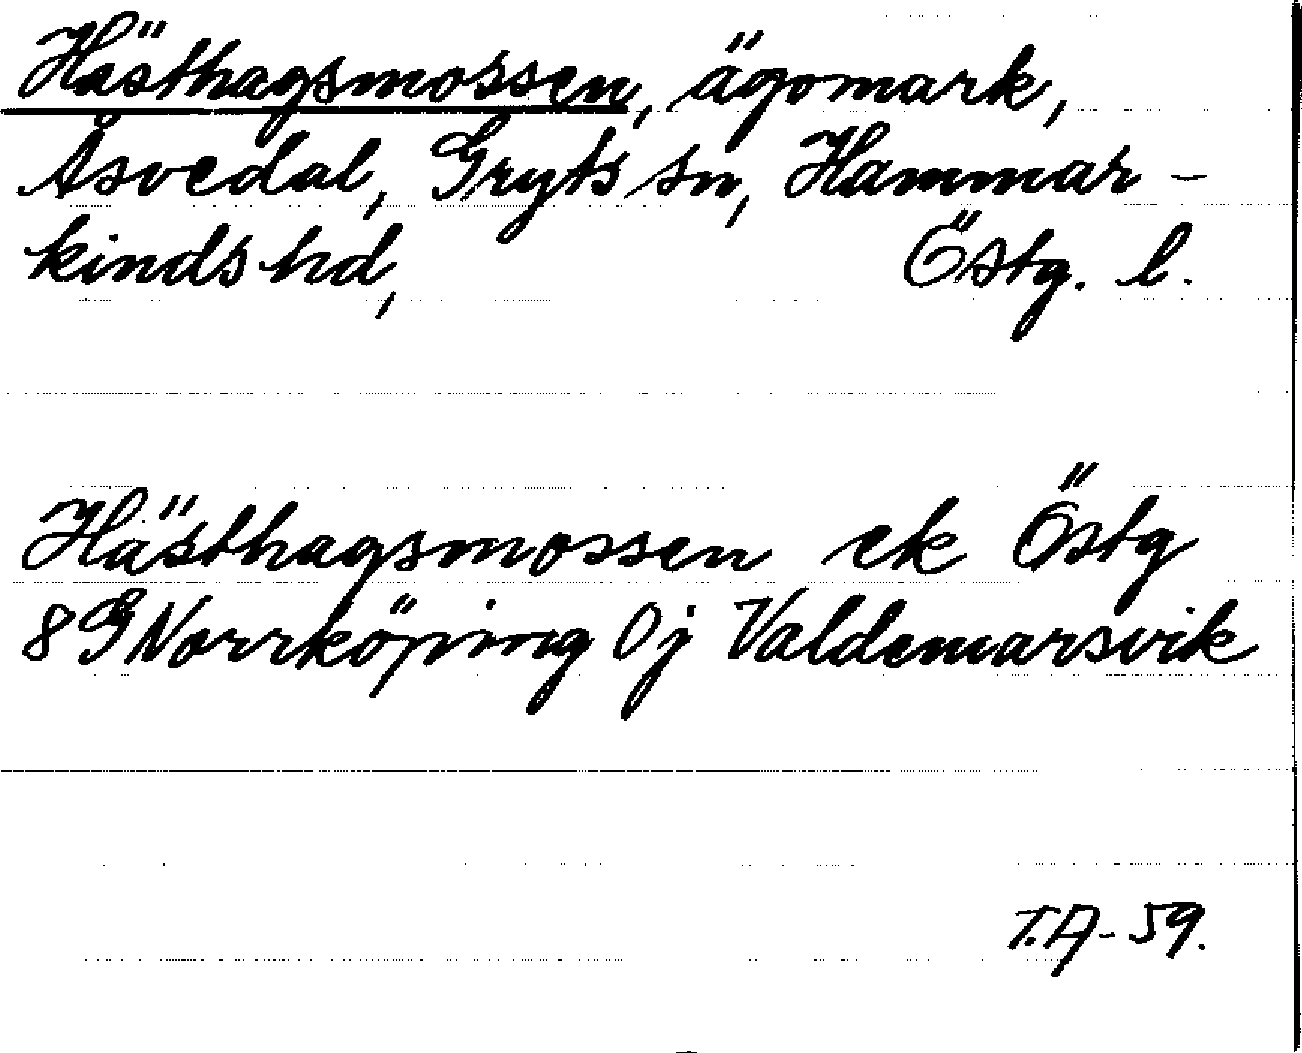 Hästhagsmossen, ägomark,
Åsvedal, Gryts sn, Hammar-
kinds hd, Östg. l.
Hästhagsmossen ek Östg
8G Norrköping 0j Valdemarsvik
T.A-59.